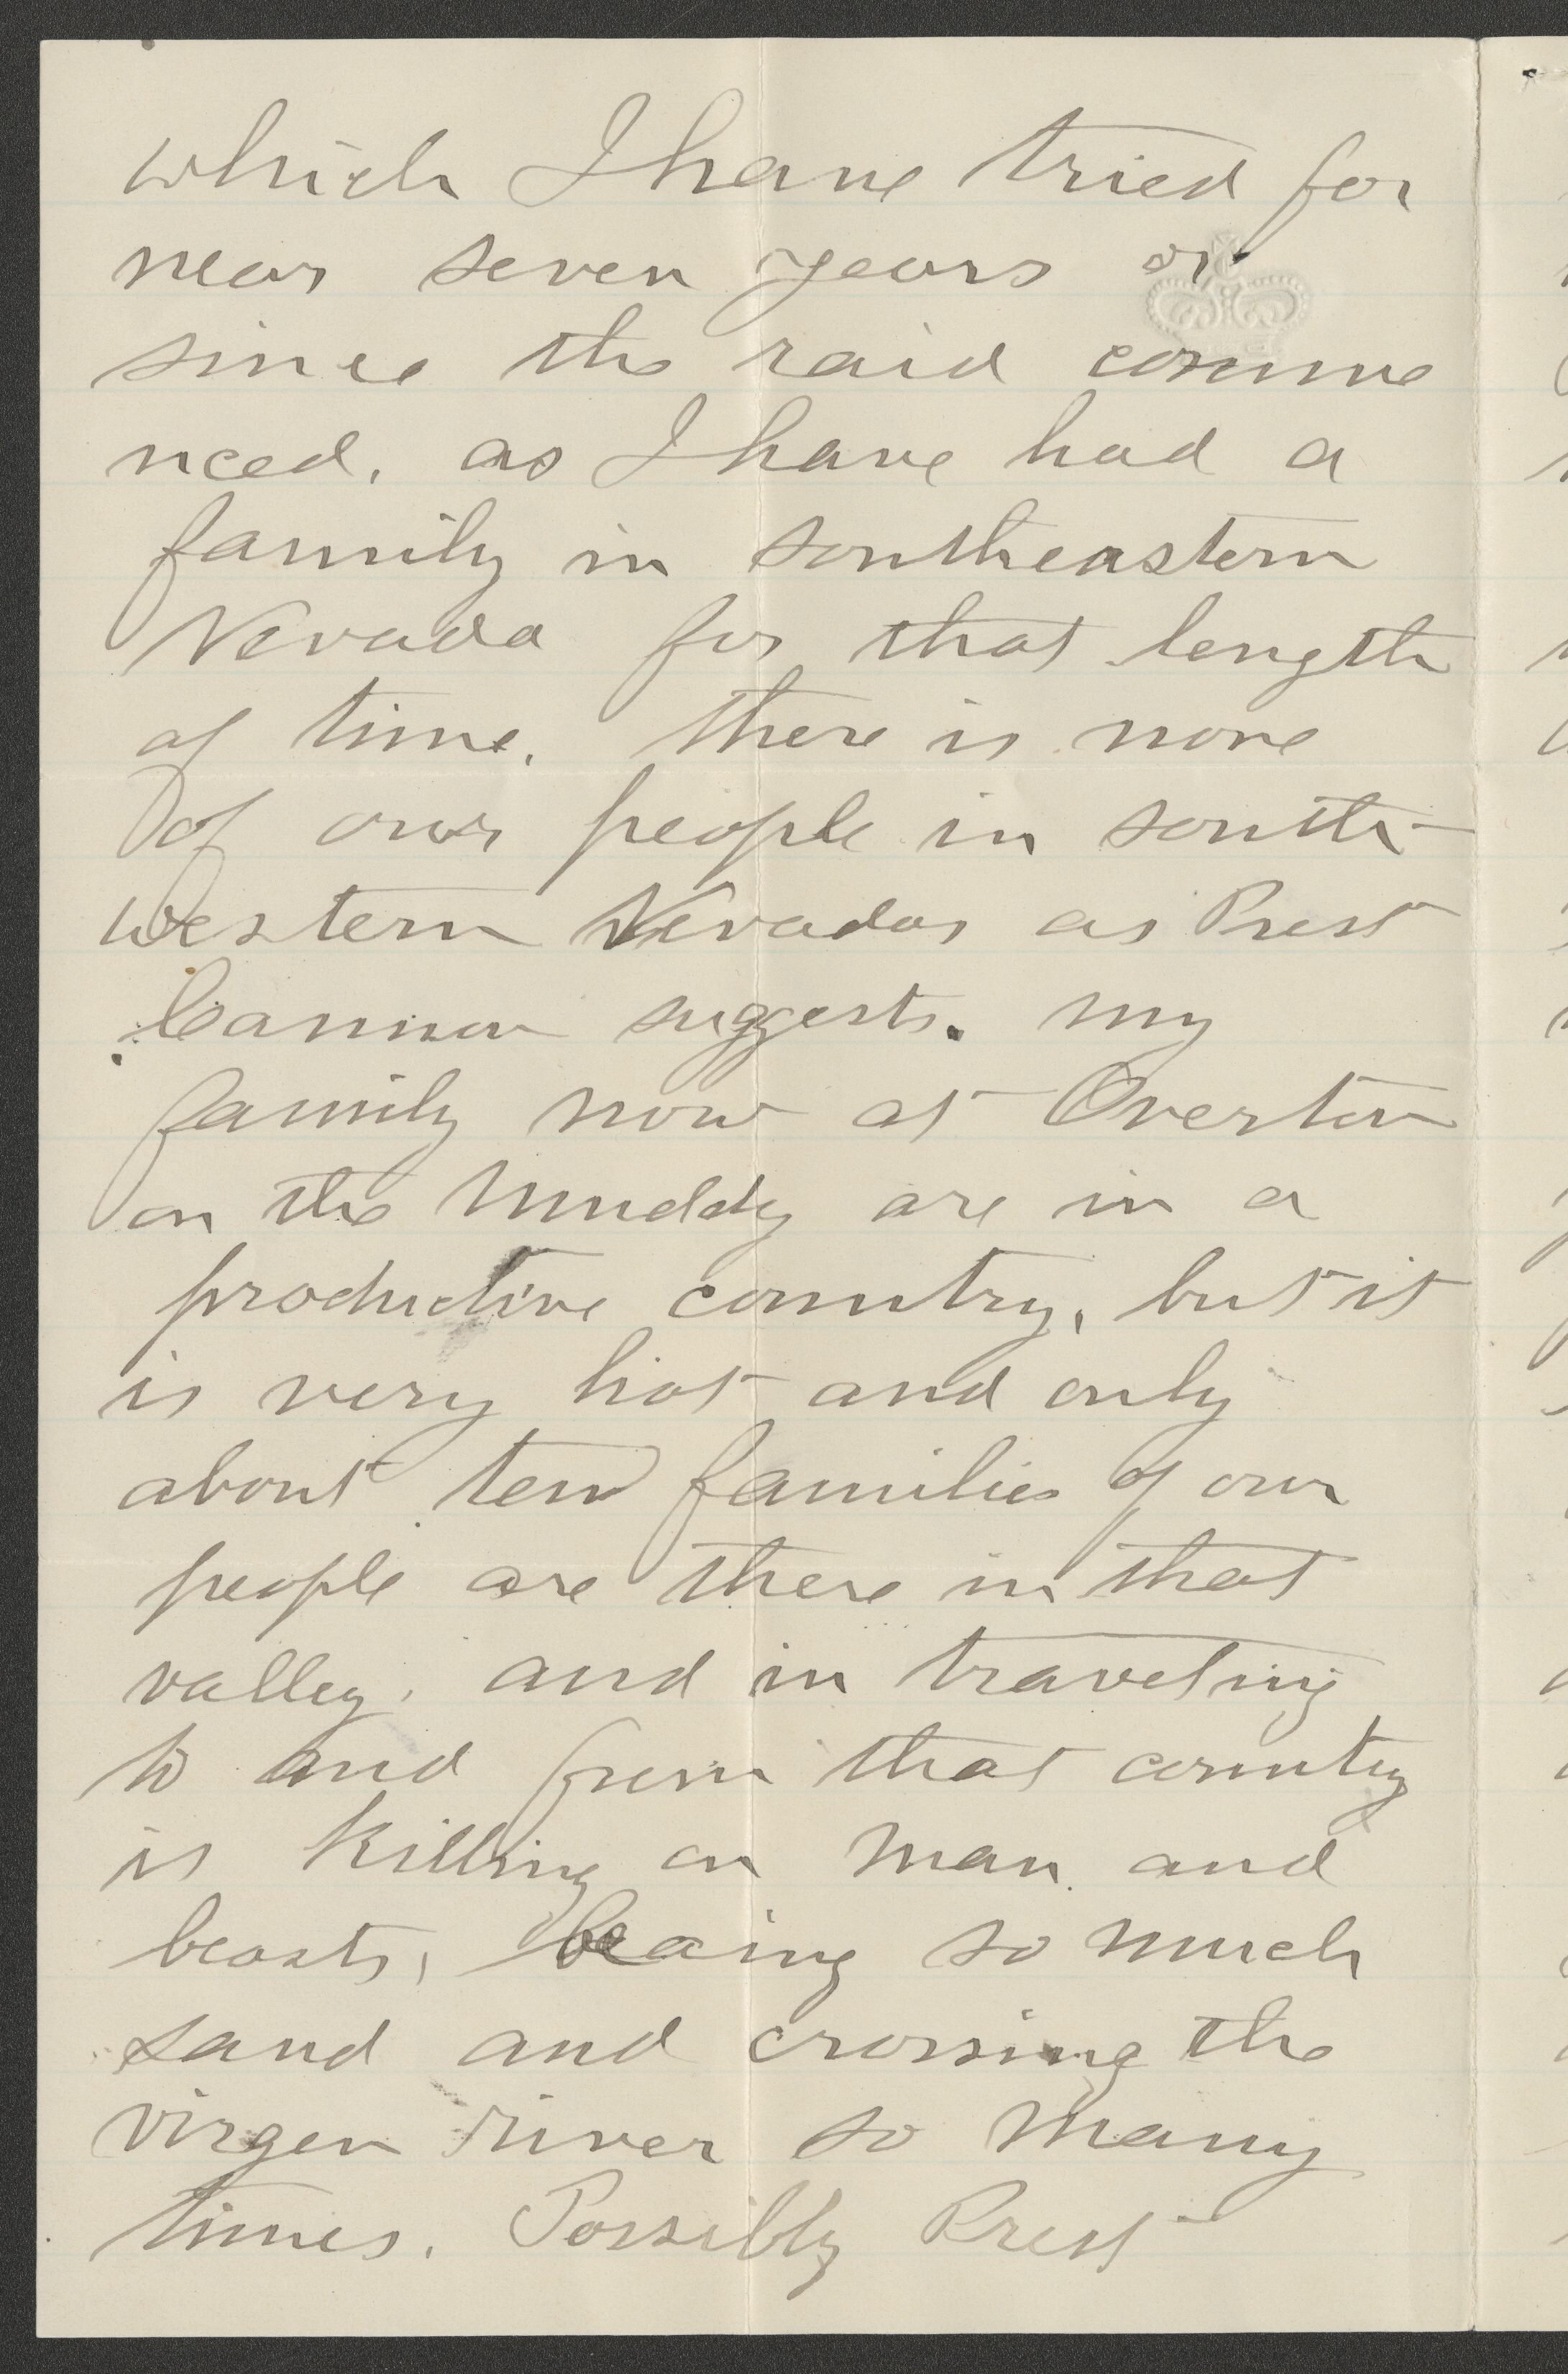 which I have tried for
near seven years or
since the raid comme
nced, as I have had a
family in southeastern
Nevada for that length
of time. there is none
of our people in south-
western Nevada, as Prest
Cannon suggests. my
family now at Overton
on the Muddy are in a
productive country, but it
is very hot and only
about ten families of our
people are there in that
valley. and in traveling
to and from that country
is killing on man and
beasts, beaing so much
sand and crossing the
virgen river so many
times. Possibly Prest